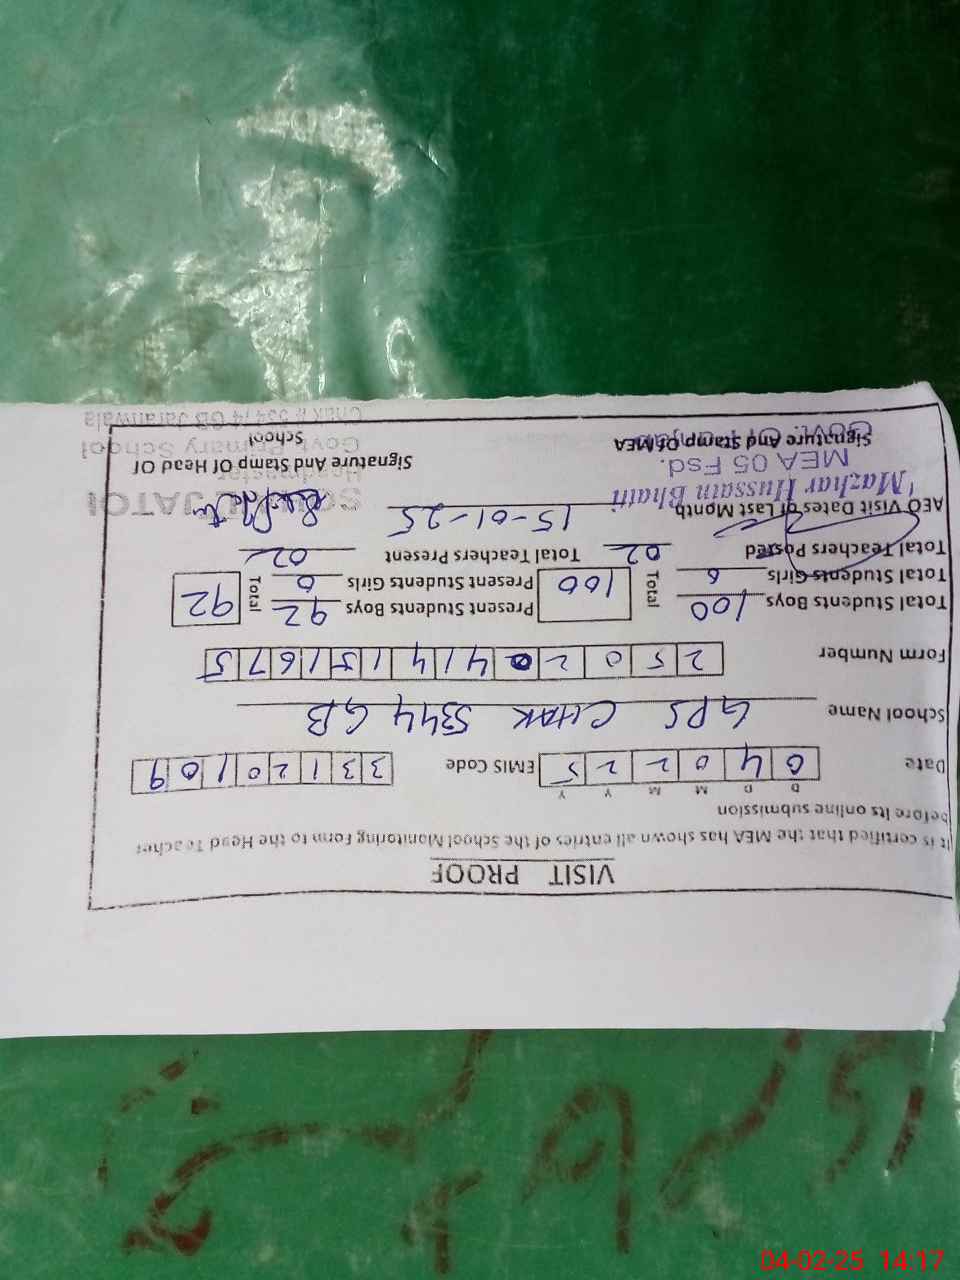 VISIT PROOF
It is certified that the MEA has shown all entries of the School Monitoring Form to the Head Teacher
before its online submission
D D M M Y Y
Date 0 4 0 2 2 5 EMIS Code 3 3 1 2 0 1 0 9
School Name GPS CHAK 5344 GB
Form Number 2 5 0 2 0 4 1 4 1 5 1 6 7 5
Total Students Boys 100 Total 100 Present Students Boys 92 Total 92
Total Students Girls 0 Present Students Girls 0
Total Teachers Posted 02 Total Teachers Present 02
AEO Visit Dates of Last Month 15-01-25
Mazhar Hussain Bhatti
MEA 05 Fsd.
Signature And Stamp Of MEA
Signature And Stamp Of Head Of
School
Headmaster
Govt. Primary School
GB Jaranwala
04-02-25 14:17